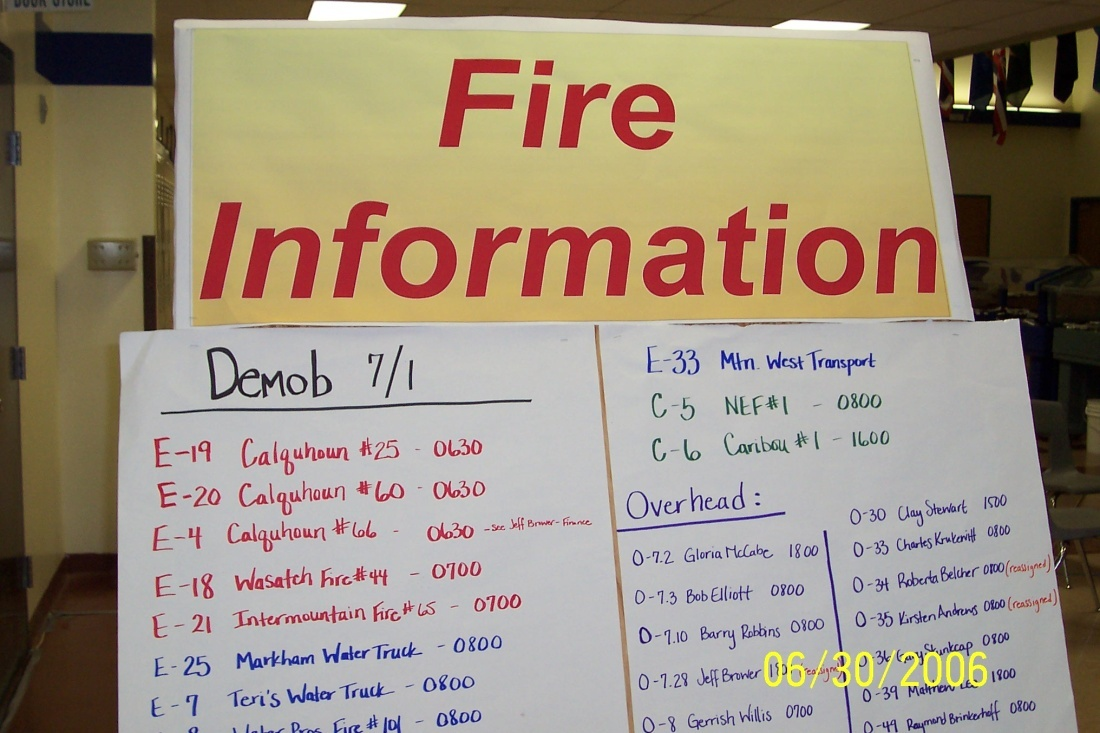 BOOK STORE
Fire
Information
Demob 7/1
E-19 Calquhoun #25 - 0630
E-20 Calquhoun #60 - 0630
E-4 Calquhoun #66 - 0630 - see Jeff Brower - Finance
E-18 Wasatch Fire #44 - 0700
E-21 Intermountain Fire #65 - 0700
E-25 Markham Water Truck - 0800
E-7 Teri's Water Truck - 0800
Water Pros Fire #101 - 0800
E-33 Mtn. West Transport
C-5 NEF #1 - 0800
C-6 Caribou #1 - 1600
Overhead:
O-7.2 Gloria McCabe 1800
O-7.3 Bob Elliott 0800
O-7.10 Barry Robbins 0800
O-7.28 Jeff Brower
O-8 Gerrish Willis 0700
O-30 Clay Stewart 1500
O-33 Charles Krukenitt 0800
O-34 Roberta Belcher 0800 (reassigned)
O-35 Kirsten Andrews 0800 (reassigned)
O-36 Gary Shunkcap 0800
O-39 Matthew Lee 1800
O-49 Raymond Brinkerhoff 0800
06/30/2006